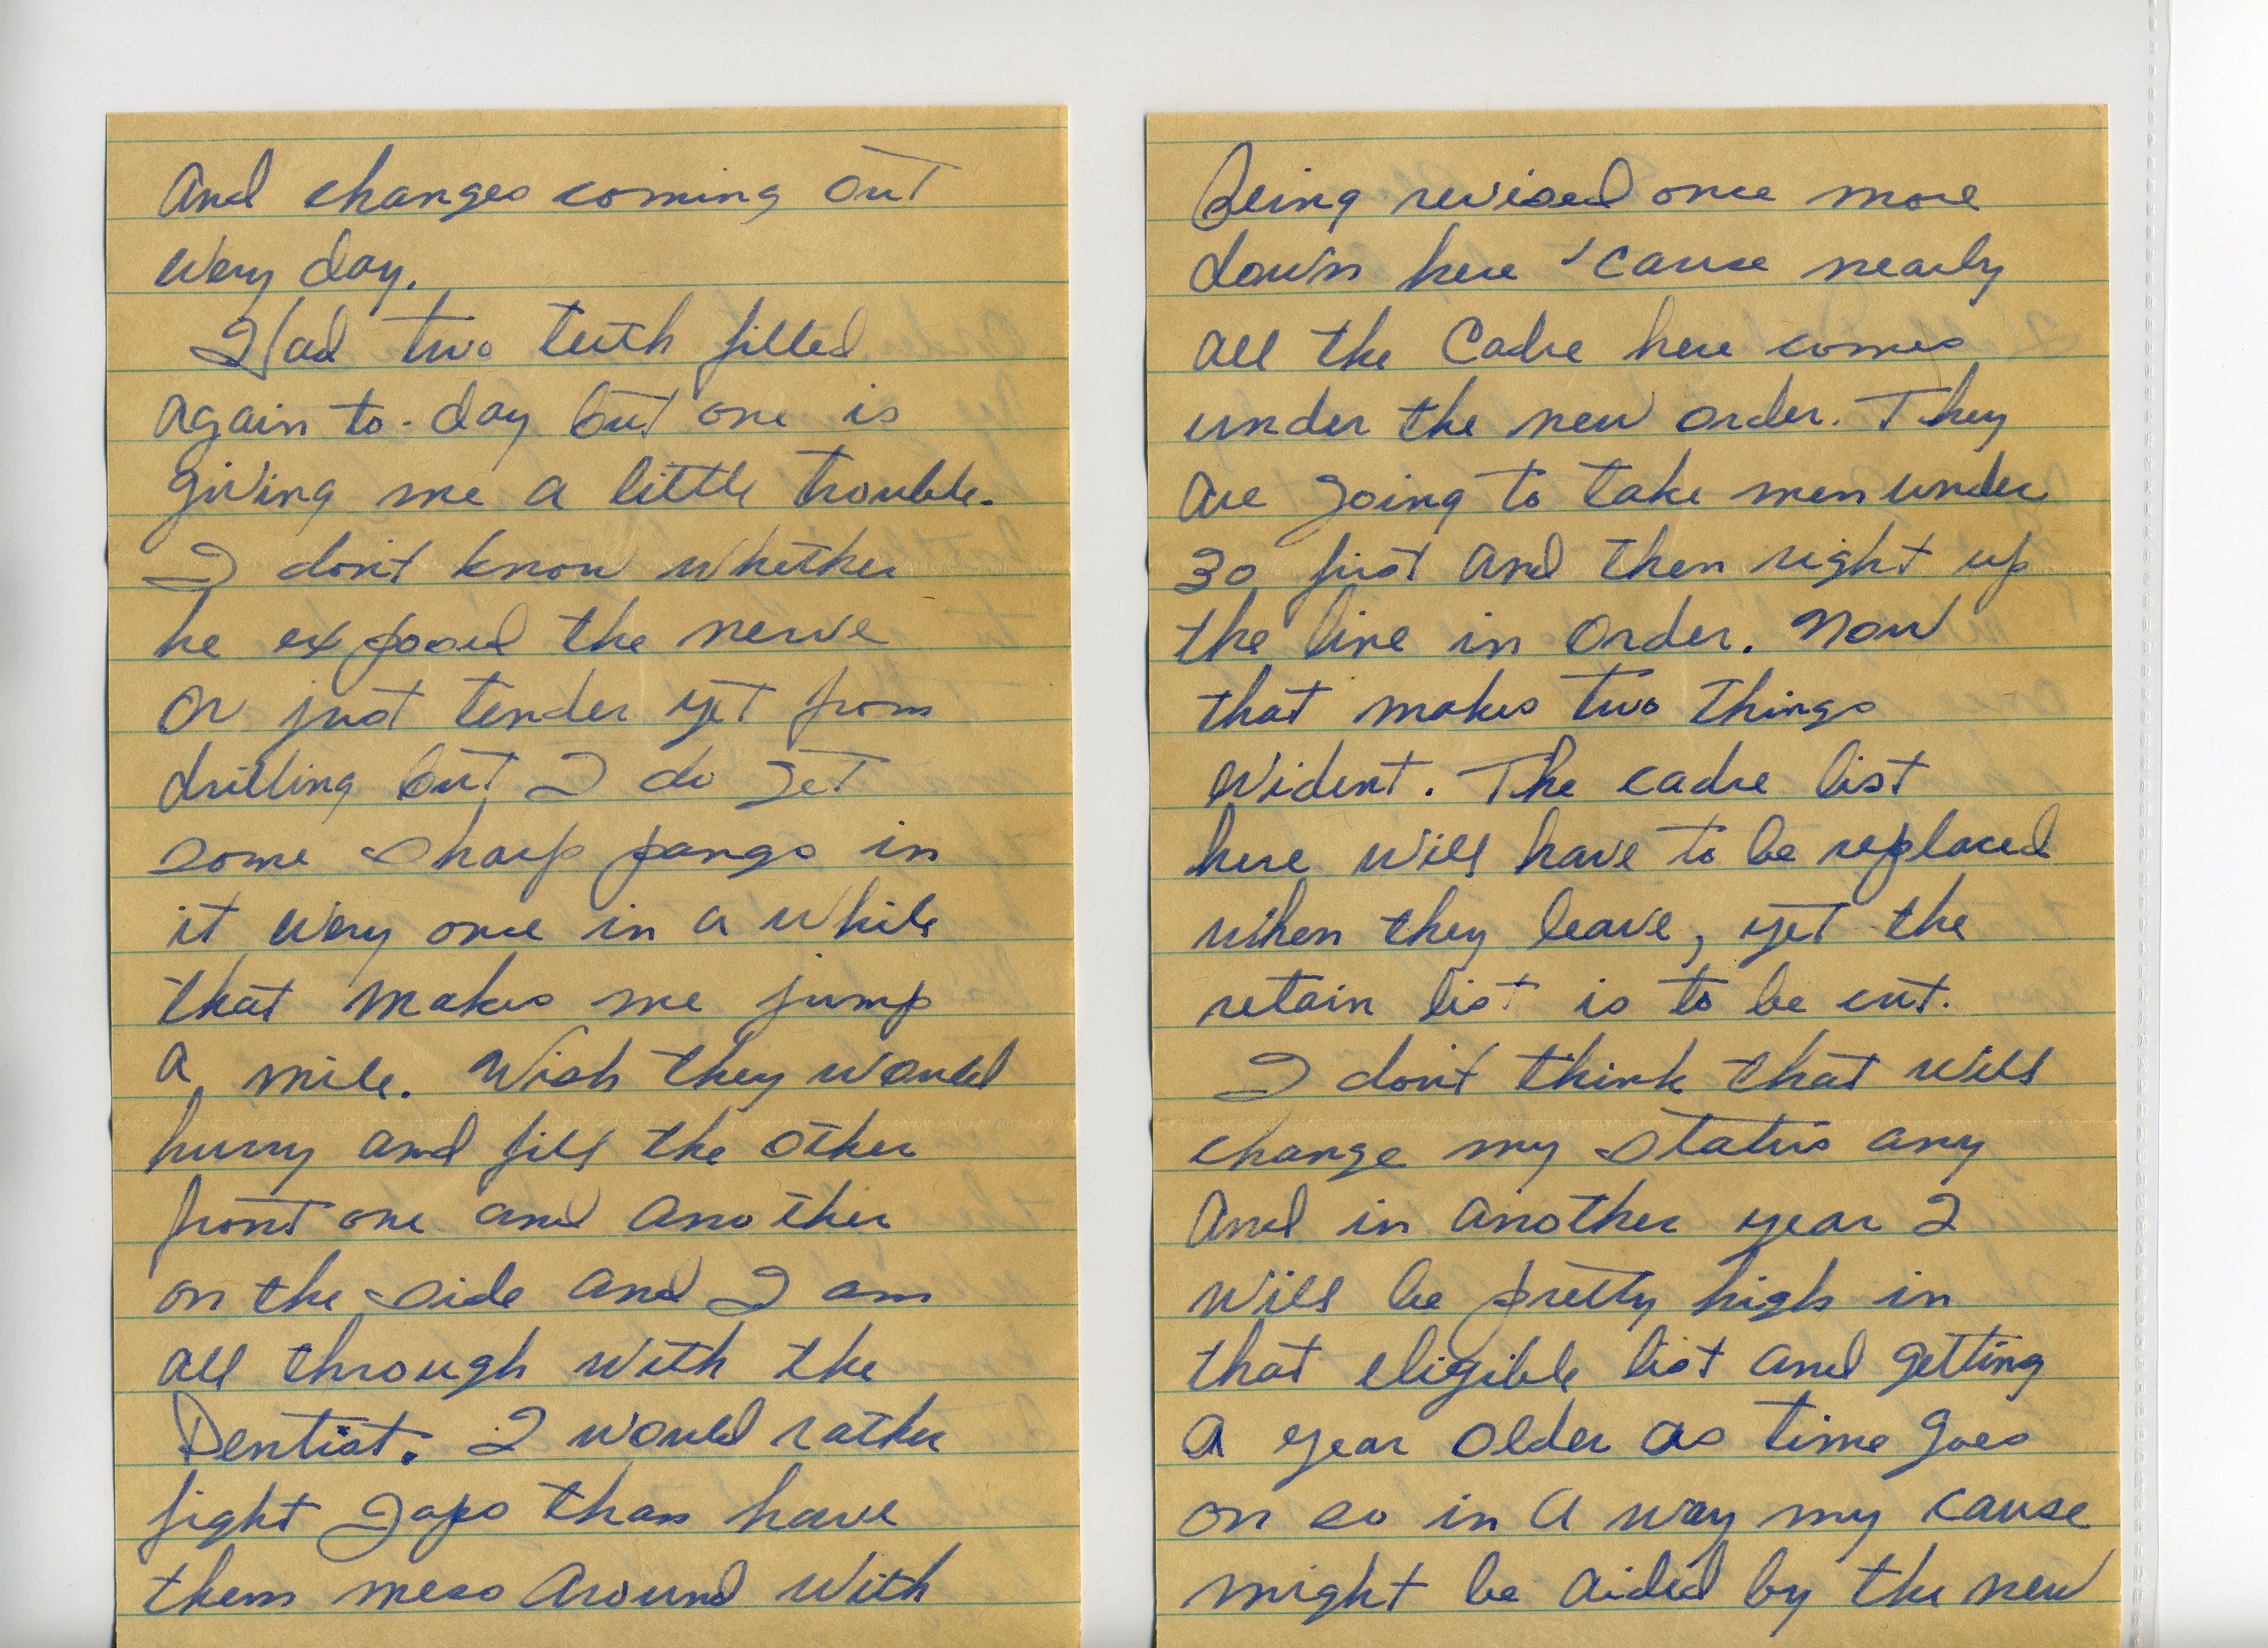 And changes coming out
every day.
Had two teeth filled
again to-day but one is
giving me a little trouble.
I don't know whether
he exposed the nerve
or just tender yet from
drilling but I do get
some sharp pangs in
it every once in a while
that makes me jump
a mile. Wish they would
hurry and fill the other
front one and another
on the side and I am
all through with the
Dentist. I would rather
fight Japs than have
them mess around with
Being revised once more
down here 'cause nearly
all the Cadre here comes
under the new order. They
are going to take men under
30 first and then right up
the line in order. Now
that makes two things
evident. The cadre list
here will have to be replaced
when they leave, yet the
retain list is to be cut.
I don't think that will
change my status any
And in another year I
will be pretty high in
that eligible list and getting
a year older as time goes
on so in a way my cause
might be aided by the new